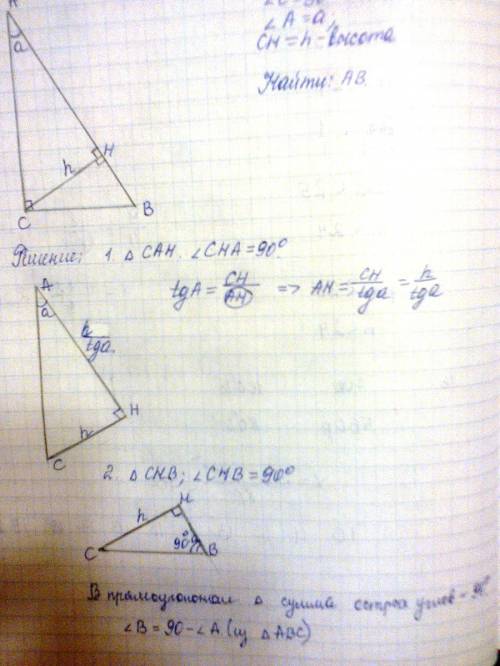 ∠A = a,
CH = h - высота
Найти: AB.
A
a
h
H
C
B
Решение: 1. △ CAH. ∠CHA = 90°
tgA = CH/AH => AH = CH/tga = h/tga
A
a
h/tga
H
h
C
2. △ CHB; ∠CHB = 90°
H
h
C
B
В прямоугольном △ сумма острых углов = 90°
∠B = 90 - ∠A (из △ABC)